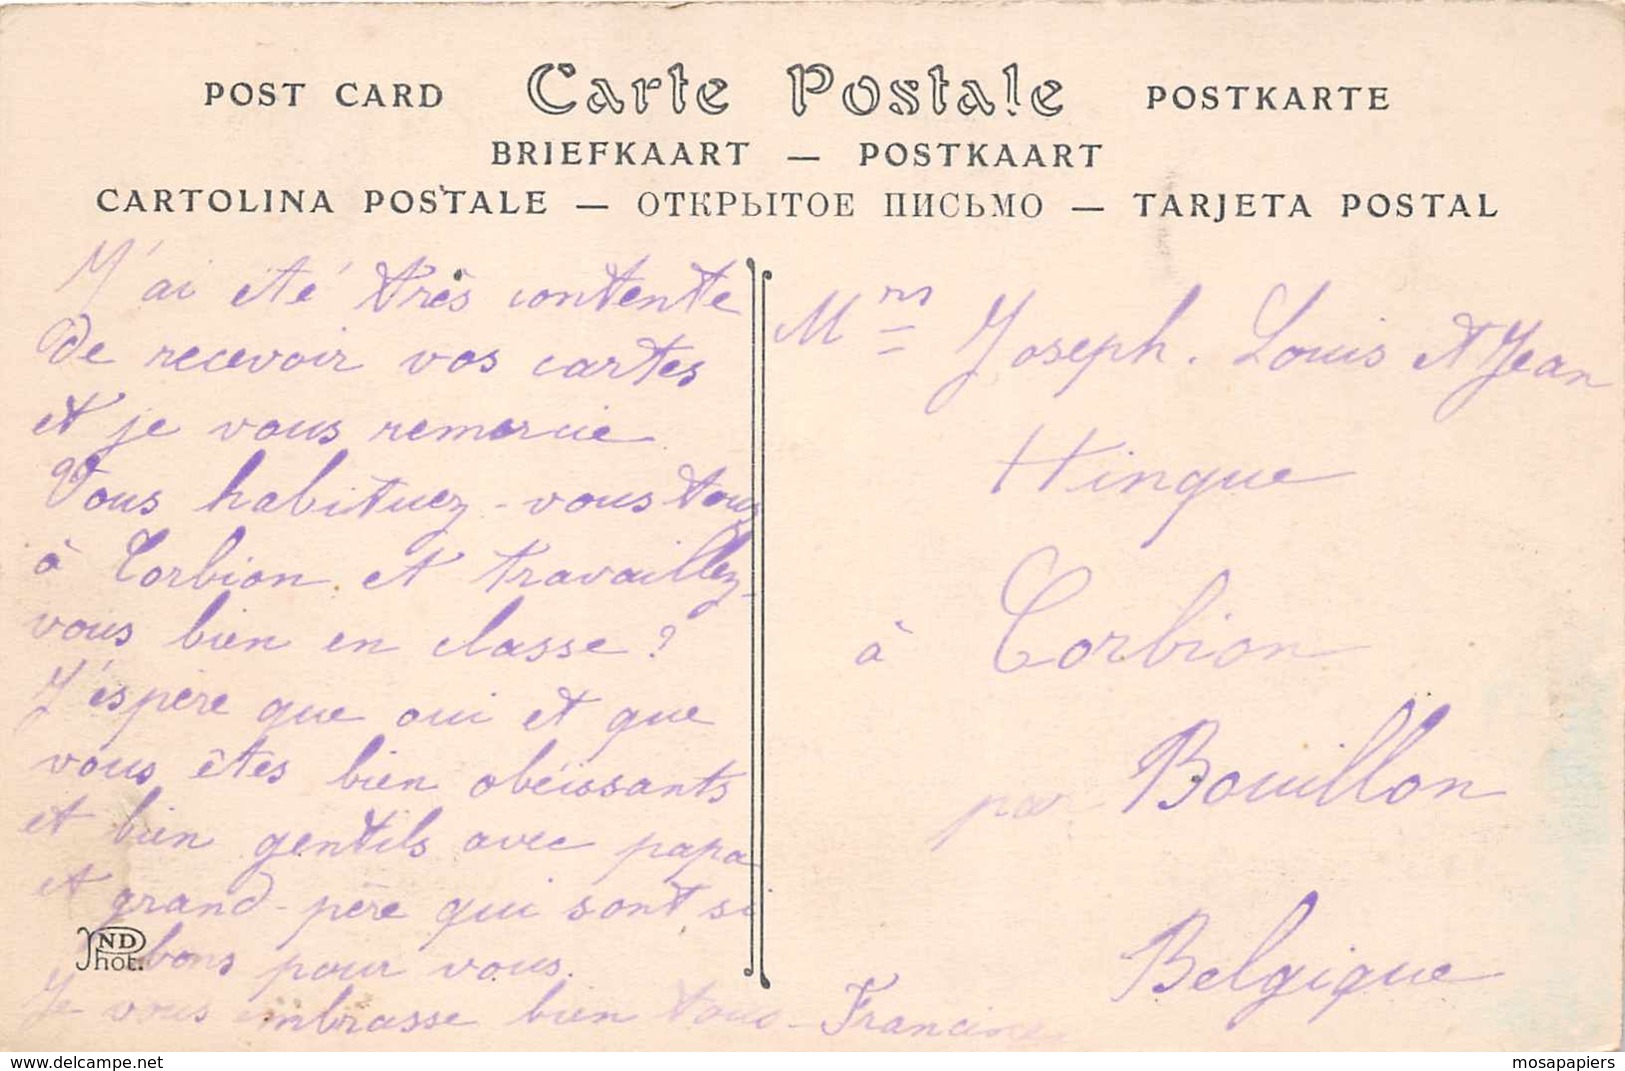 POST CARD Carte Postale POSTKARTE
BRIEFKAART — POSTKAART
CARTOLINA POSTALE — ОТКРЫТОЕ ПИСЬМО — TARJETA POSTAL
J'ai été très contente
de recevoir vos cartes
et je vous remercie
Vous habituez-vous tous
à Corbion et travaillez-
vous bien en classe?
J'espère que oui et que
vous êtes bien obéissants
et bien gentils avec papa
et grand-père qui sont si
bons pour vous.
Je vous embrasse bien tous - Francine
Mrs Joseph. Louis et Jean
Hinque
à Corbion
par Bouillon
Belgique
ND
Phot.
mosapapiers